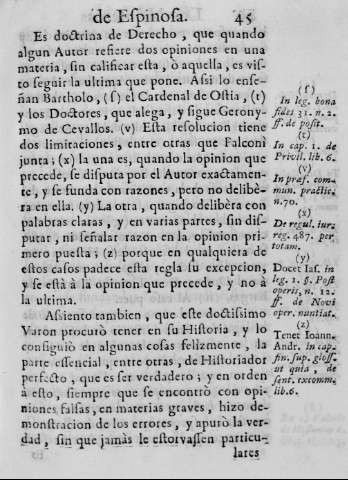 de Espinosa. 45
Es doctrina de Derecho, que quando
algun Autor refiere dos opiniones en una
materia, sin calificar esta, ò aquella, es vis-
to seguir la ultima que pone. Assi lo ense-
ñan Bartholo, (s) el Cardenal de Ostia, (t)
y los Doctores, que alega, y sigue Gerony-
mo de Cevallos. (v) Esta resolucion tiene
dos limitaciones, entre otras que Falconì
junta; (x) la una es, quando la opinion que
precede, se disputa por el Autor exactamen-
te, y se funda con razones, pero no delibè-
ra en ella. (y) La otra, quando delibèra con
palabras claras, y en varias partes, sin dis-
putar, ni señalar razon en la opinion pri-
mero puesta; (z) porque en qualquiera de
estos casos padece esta regla su excepcion,
y se està à la opinion que precede, y no à
la ultima.
Assiento tambien, que este doctissimo
Varon procurò tener en su Historia, y lo
consiguiò en algunas cosas felizmente, la
parte essencial, entre otras, de Historiador
perfecto, que es ser verdadero; y en orden
à esto, siempre que se encontrò con opi-
niones falsas, en materias graves, hizo de-
monstracion de los errores, y apurò la ver-
dad, sin que jamàs le estorvassen particu-
lares
(s)
In leg. bona
fides 31. n. 2.
ff. de posit.
(t)
In cap. 1. de
Privil. lib. 6.
(v)
In præf. com-
mun. practic.
n. 70.
(x)
De regul. iur.
reg. 487. per
totam.
(y)
Docet Ias. in
leg. 1. §. Post
operis, n. 12.
ff. de Novi
oper. nuntiat.
(z)
Tenet Ioann.
Andr. in cap.
fin. sup. gloss.
ut quia, de
sent. excomm.
lib. 6.